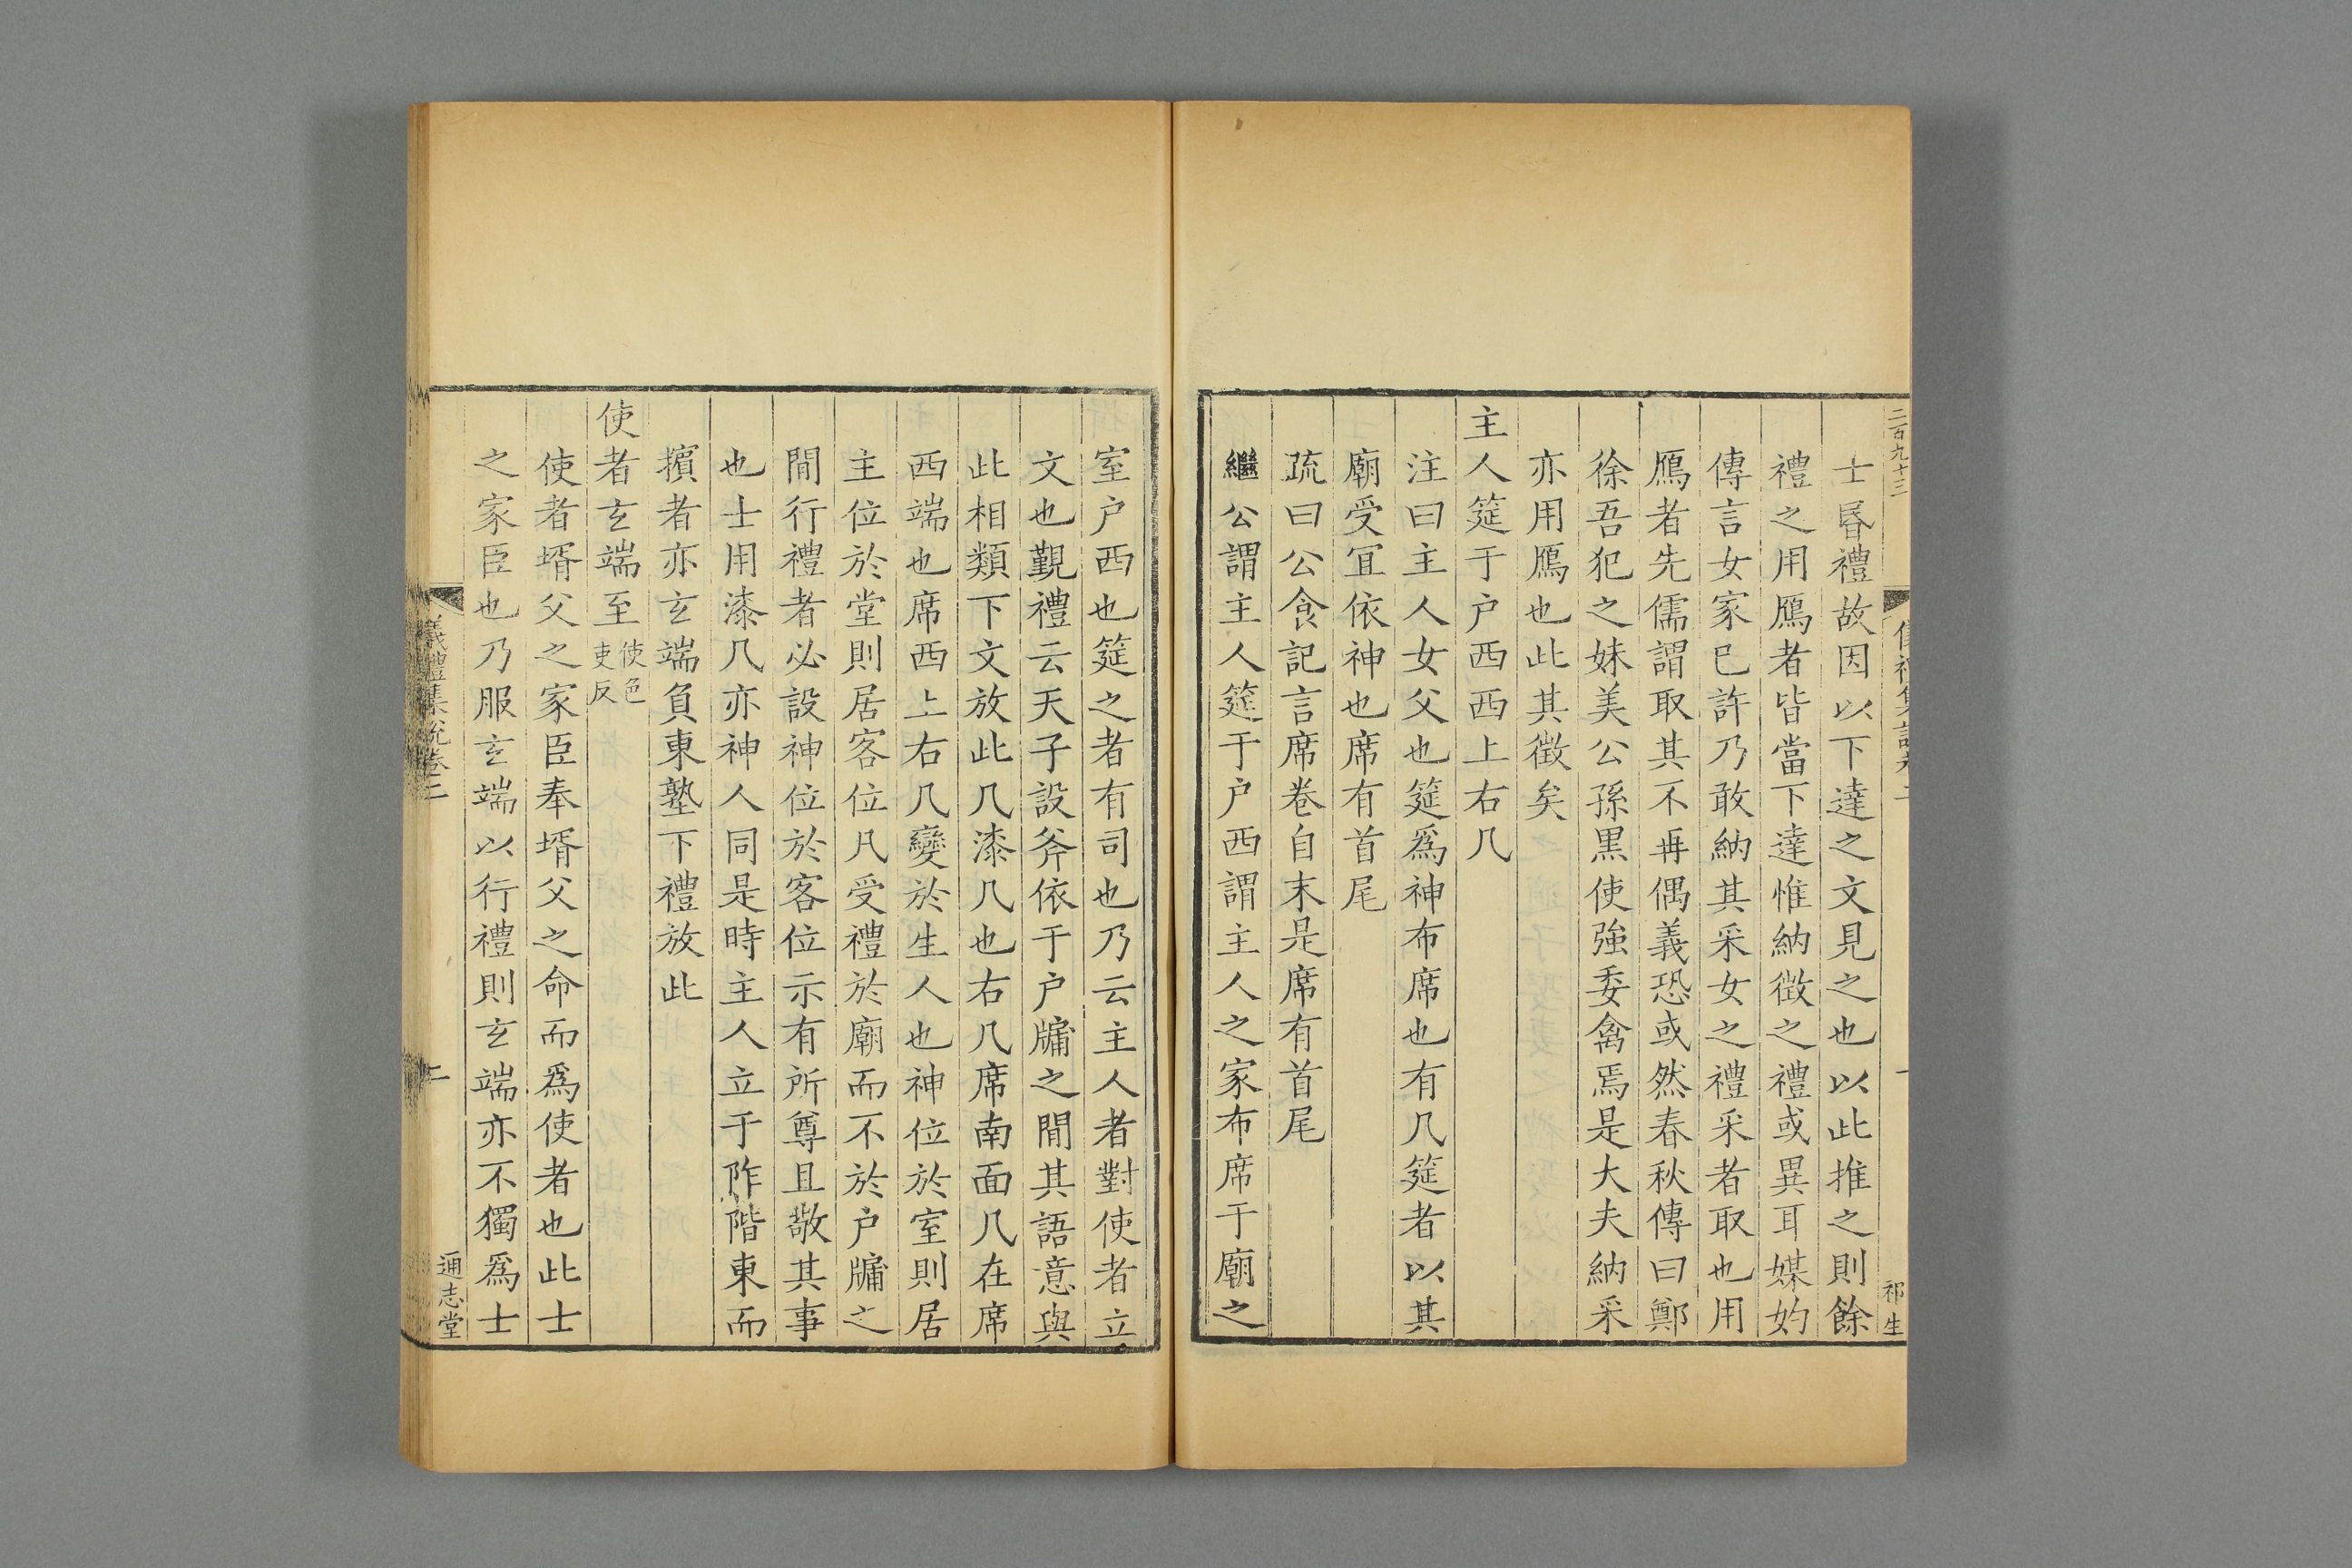 二百九十三
一
祁生
士昬禮故因以下達之文見之也以此推之則餘
禮之用鴈者皆當下達惟納徵之禮或異耳媒妁
傳言女家已許乃敢納其采女之禮采者取也用
鴈者先儒謂取其不再偶義恐或然春秋傳曰鄭
徐吾犯之妹美公孫黒使強委禽焉是大夫納采
亦用鴈也此其徵矣
主人筵于户西西上右几
注曰主人女父也筵爲神布席也有几筵者以其
廟受冝依神也席有首尾
疏曰公食記言席卷自末是席有首尾
繼公謂主人筵于户西謂主人之家布席于廟之
室户西也筵之者有司也乃云主人者對使者立
文也覲禮云天子設斧依于户牖之間其語意與
此相類下文放此几漆几也右几席南面几在席
西端也席西上右几變於生人也神位於室則居
主位於堂則居客位凡受禮於廟而不於户牖之
間行禮者必設神位於客位示有所尊且敬其事
也士用漆几亦神人同是時主人立于阼階東而
擯者亦玄端負東塾下禮放此
使者玄端至使色吏反
使者壻父之家臣奉壻父之命而爲使者也此士
之家臣也乃服玄端以行禮則玄端亦不獨爲士
儀禮集說卷二
二
通志堂